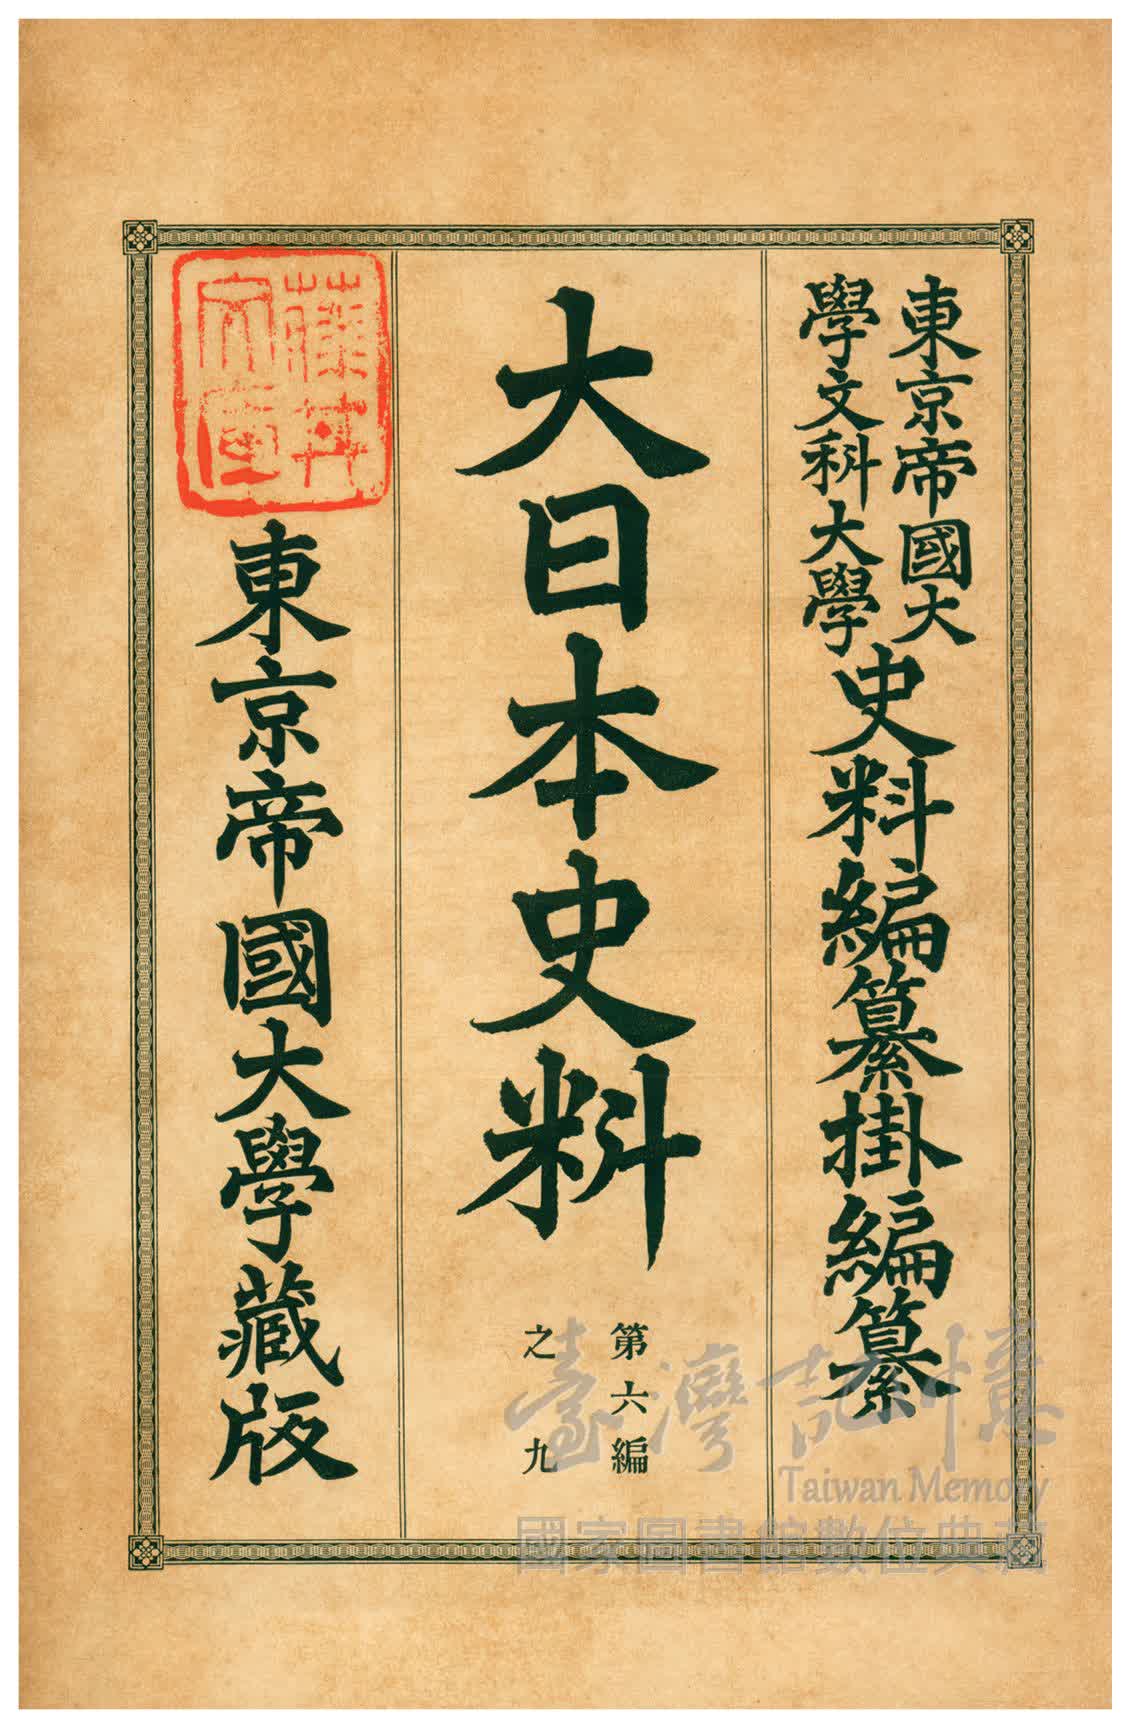 東京帝國大
學文科大學
史料編纂掛編纂
大日本史料
第六編
之九
東京帝國大學藏版
藤井
文庫
臺灣記憶
Taiwan Memory
國家圖書館數位典藏